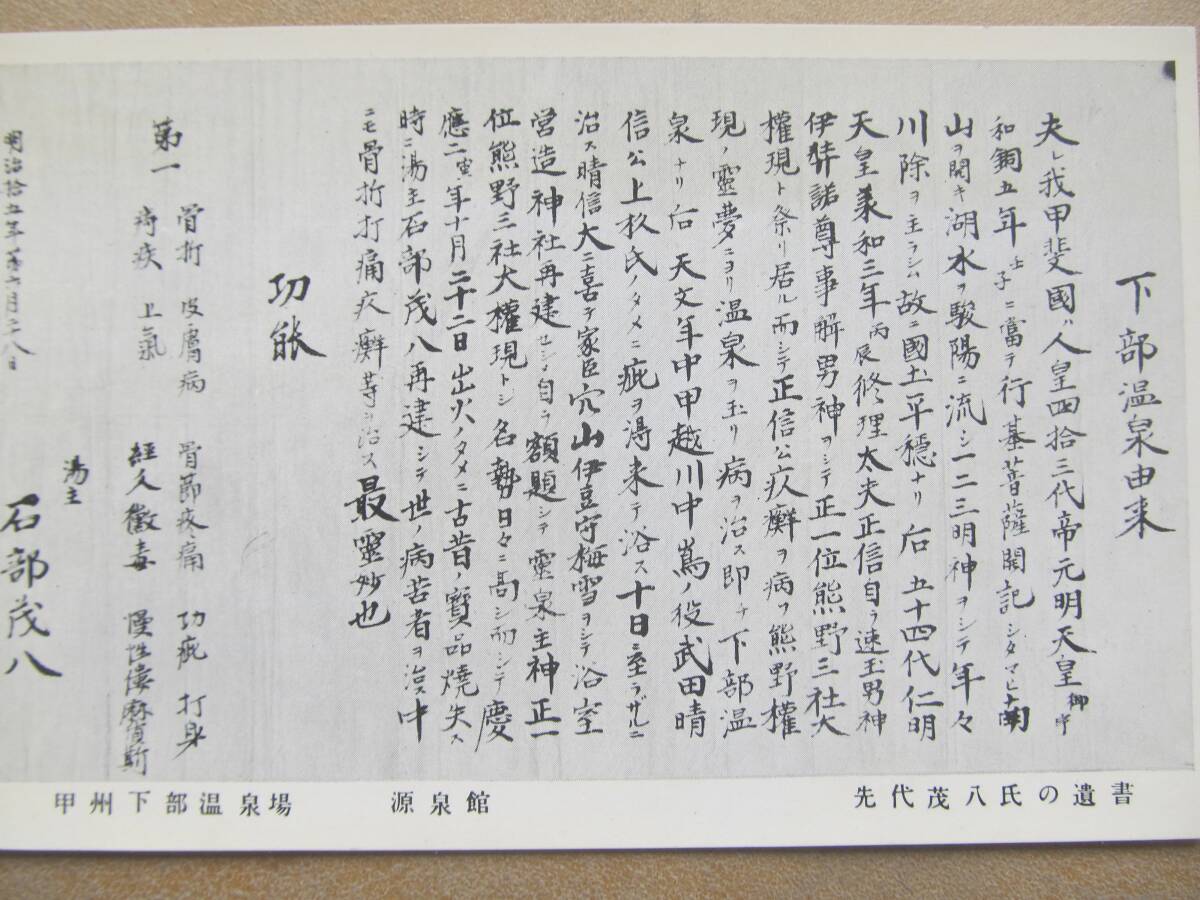 下部温泉由来
夫レ我甲斐國ハ人皇四拾三代帝元明天皇御中
和銅五年壬子ニ當テ行基菩薩開記シタマヒ
山ヲ開キ湖水ヲ駿陽ニ流シ一二三明神ヲシテ年々
川除ヲ主ラシム故ニ國土平穏ナリ后五十四代仁明
天皇承和三年丙辰修理太夫正信自ラ速玉男神
伊弉諾尊事解男神ヲシテ正一位熊野三社大
權現ト祭リ居ル而シテ正信公疚癬ヲ病ヲ熊野權
現ノ靈夢ニヨリ温泉ヲ玉リ病ヲ治ス即チ下部温
泉ナリ后天文年中甲越川中嶌ノ役武田晴
信公上杦氏ノタメニ疵ヲ淂来テ浴ス十日ニ至ラザルニ
治ス晴信大ニ喜テ家臣穴山伊豆守梅雪ヲシテ浴室
営造神社再建セシメ自ラ額題シテ靈泉主神正一
位熊野三社大權現トシ名勢日々ニ高シ而シテ慶
應二寅年十月二十二日出火ノタメニ古昔ノ寳品焼失ス
時ニ湯主石部茂八再建シテ世ノ病苦者ヲ治ス中
ニモ骨折打痛疚癬等ヲ治ス最靈妙也
功能
第一 骨折 皮膚病 骨節疼痛 功疵 打身
痔疾 上氣 經久黴毒 慢性僂麻質斯
明治拾五年第六月二八日
湯主 石部茂八
先代茂八氏の遺書
源泉館
甲州下部温泉場